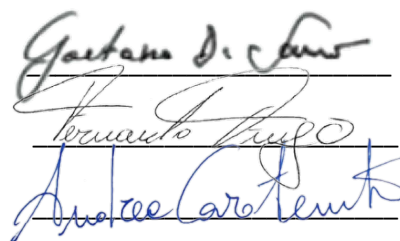 Gaetano Di Sarno
Fernando Drago
Andrea Carotenuto